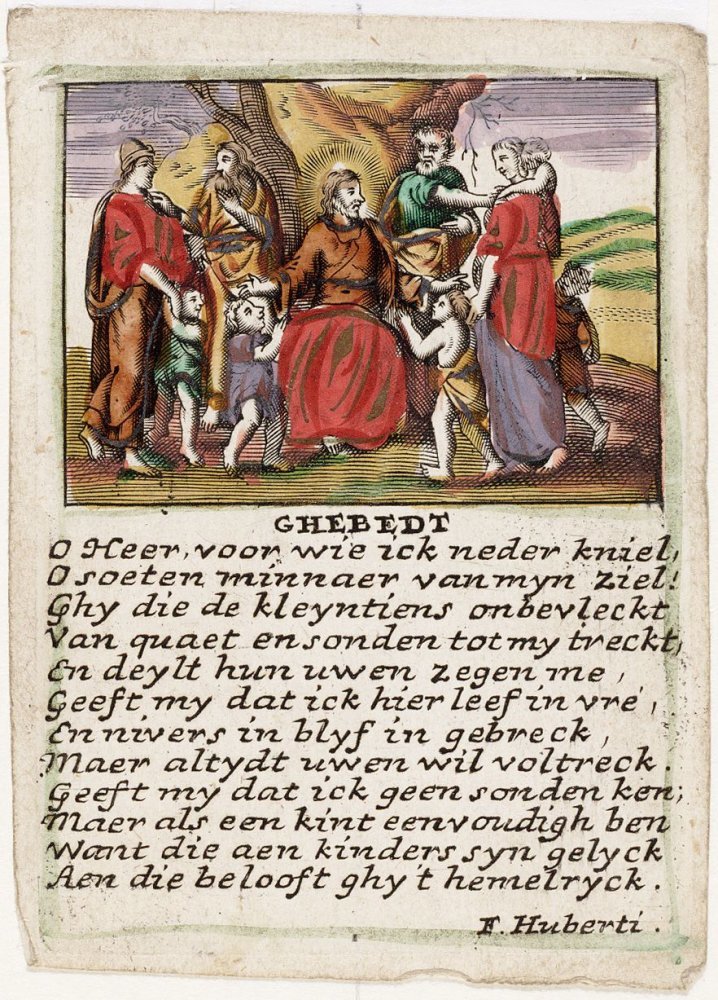 GHEBEDT
O Heer, voor wie ick neder kniel,
O soeten minnaer van myn ziel!
Ghy die de kleyntiens onbevleckt
Van quaet en sonden tot my treckt,
En deylt hun uwen zegen me,
Geeft my dat ick hier leef in vré,
En nivers in blyf in gebreck,
Maer altydt uwen wil voltreck.
Geeft my dat ick geen sonden ken;
Maer als een kint eenvoudigh ben
Want die aen kinders syn gelyck
Aen die belooft ghy 't hemelryck.
F. Huberti.